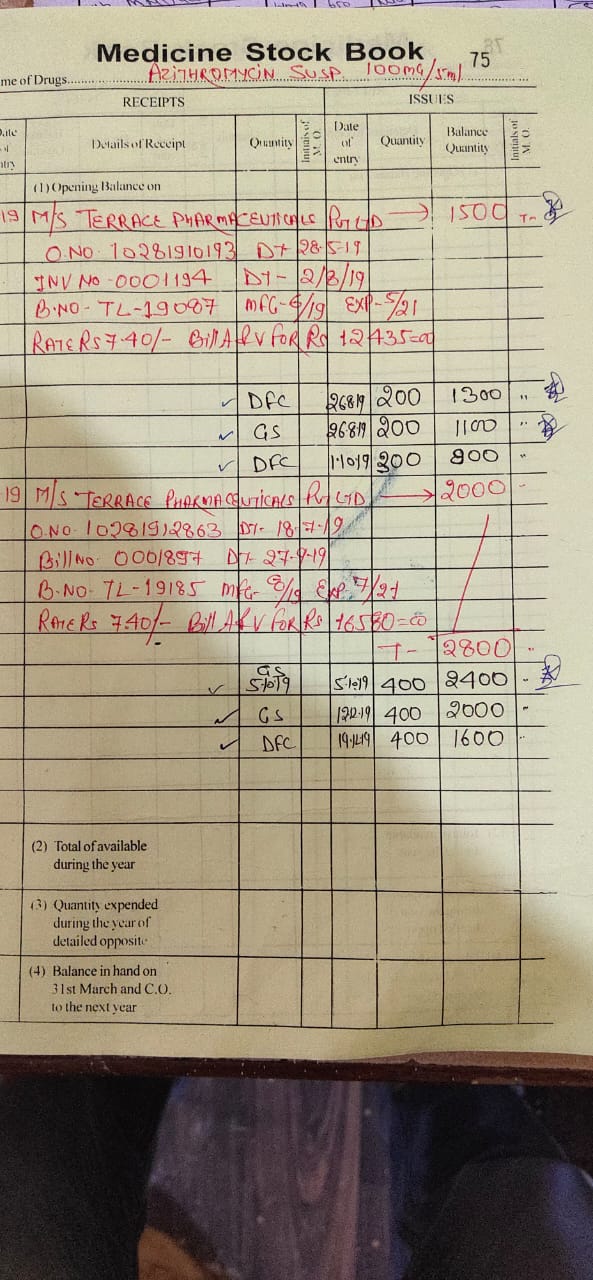 Medicine Stock Book 75
me of Drugs AZITHROMYCIN SUSP. 100mg/5ml
RECEIPTS ISSUES
Date of entry Details of Receipt Quantity Initials of M. O. Date of entry Quantity Balance Quantity Initials of M. O.
(1) Opening Balance on
19 M/S TERRACE PHARMACEUTICALS PVT LTD → 1500
O.NO. 10281910193 DT 28-5-19
INV NO - 0001194 DT- 2/8/19
B.NO- TL-19087 MFG-6/19 EXP-5/21
RATE RS 7.40/- Bill A R V FOR Rs 12435=00
DFC 26819 200 1300 "
GS 26819 200 1100 "
DFC 1-10-19 200 900 "
19 M/S TERRACE PHARMACEUTICALS PVT LTD → 2000 "
O.NO. 10281912863 DT- 18-7-19
Bill No. 0001897 DT- 27-9-19
B.NO- TL-19185 MFG- 8/19 EXP. 7/21
RATE Rs 7.40/- Bill A R V FOR Rs 16580=00
T- 2800 "
GS
5-10-19 5-10-19 400 2400 "
GS 12-12-19 400 2000 "
DFC 400 1600 "
(2) Total of available
during the year
(3) Quantity expended
during the year of
detailed opposite
(4) Balance in hand on
31st March and C.O.
to the next year